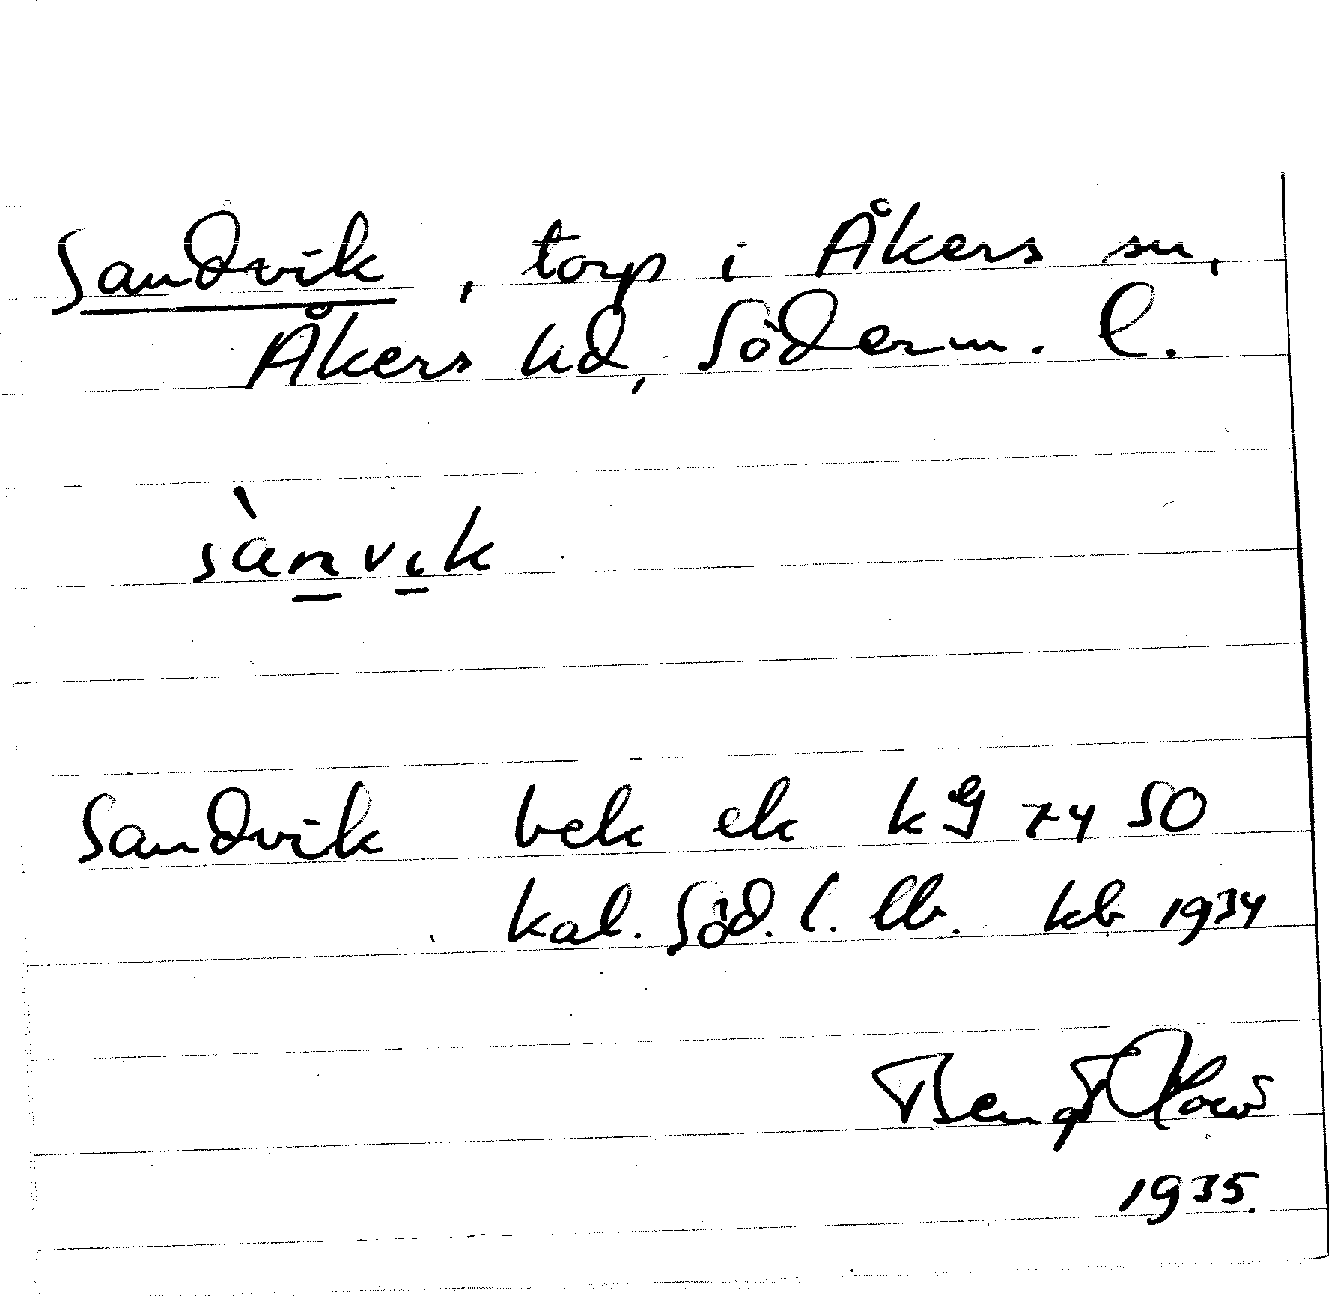 Sandvik, torp i Åkers sn,
Åkers hd, Söderm. l.
sànvik
Sandvik bek ek
kal. Söd. l. llr. kb 1934
Bengt
1935.